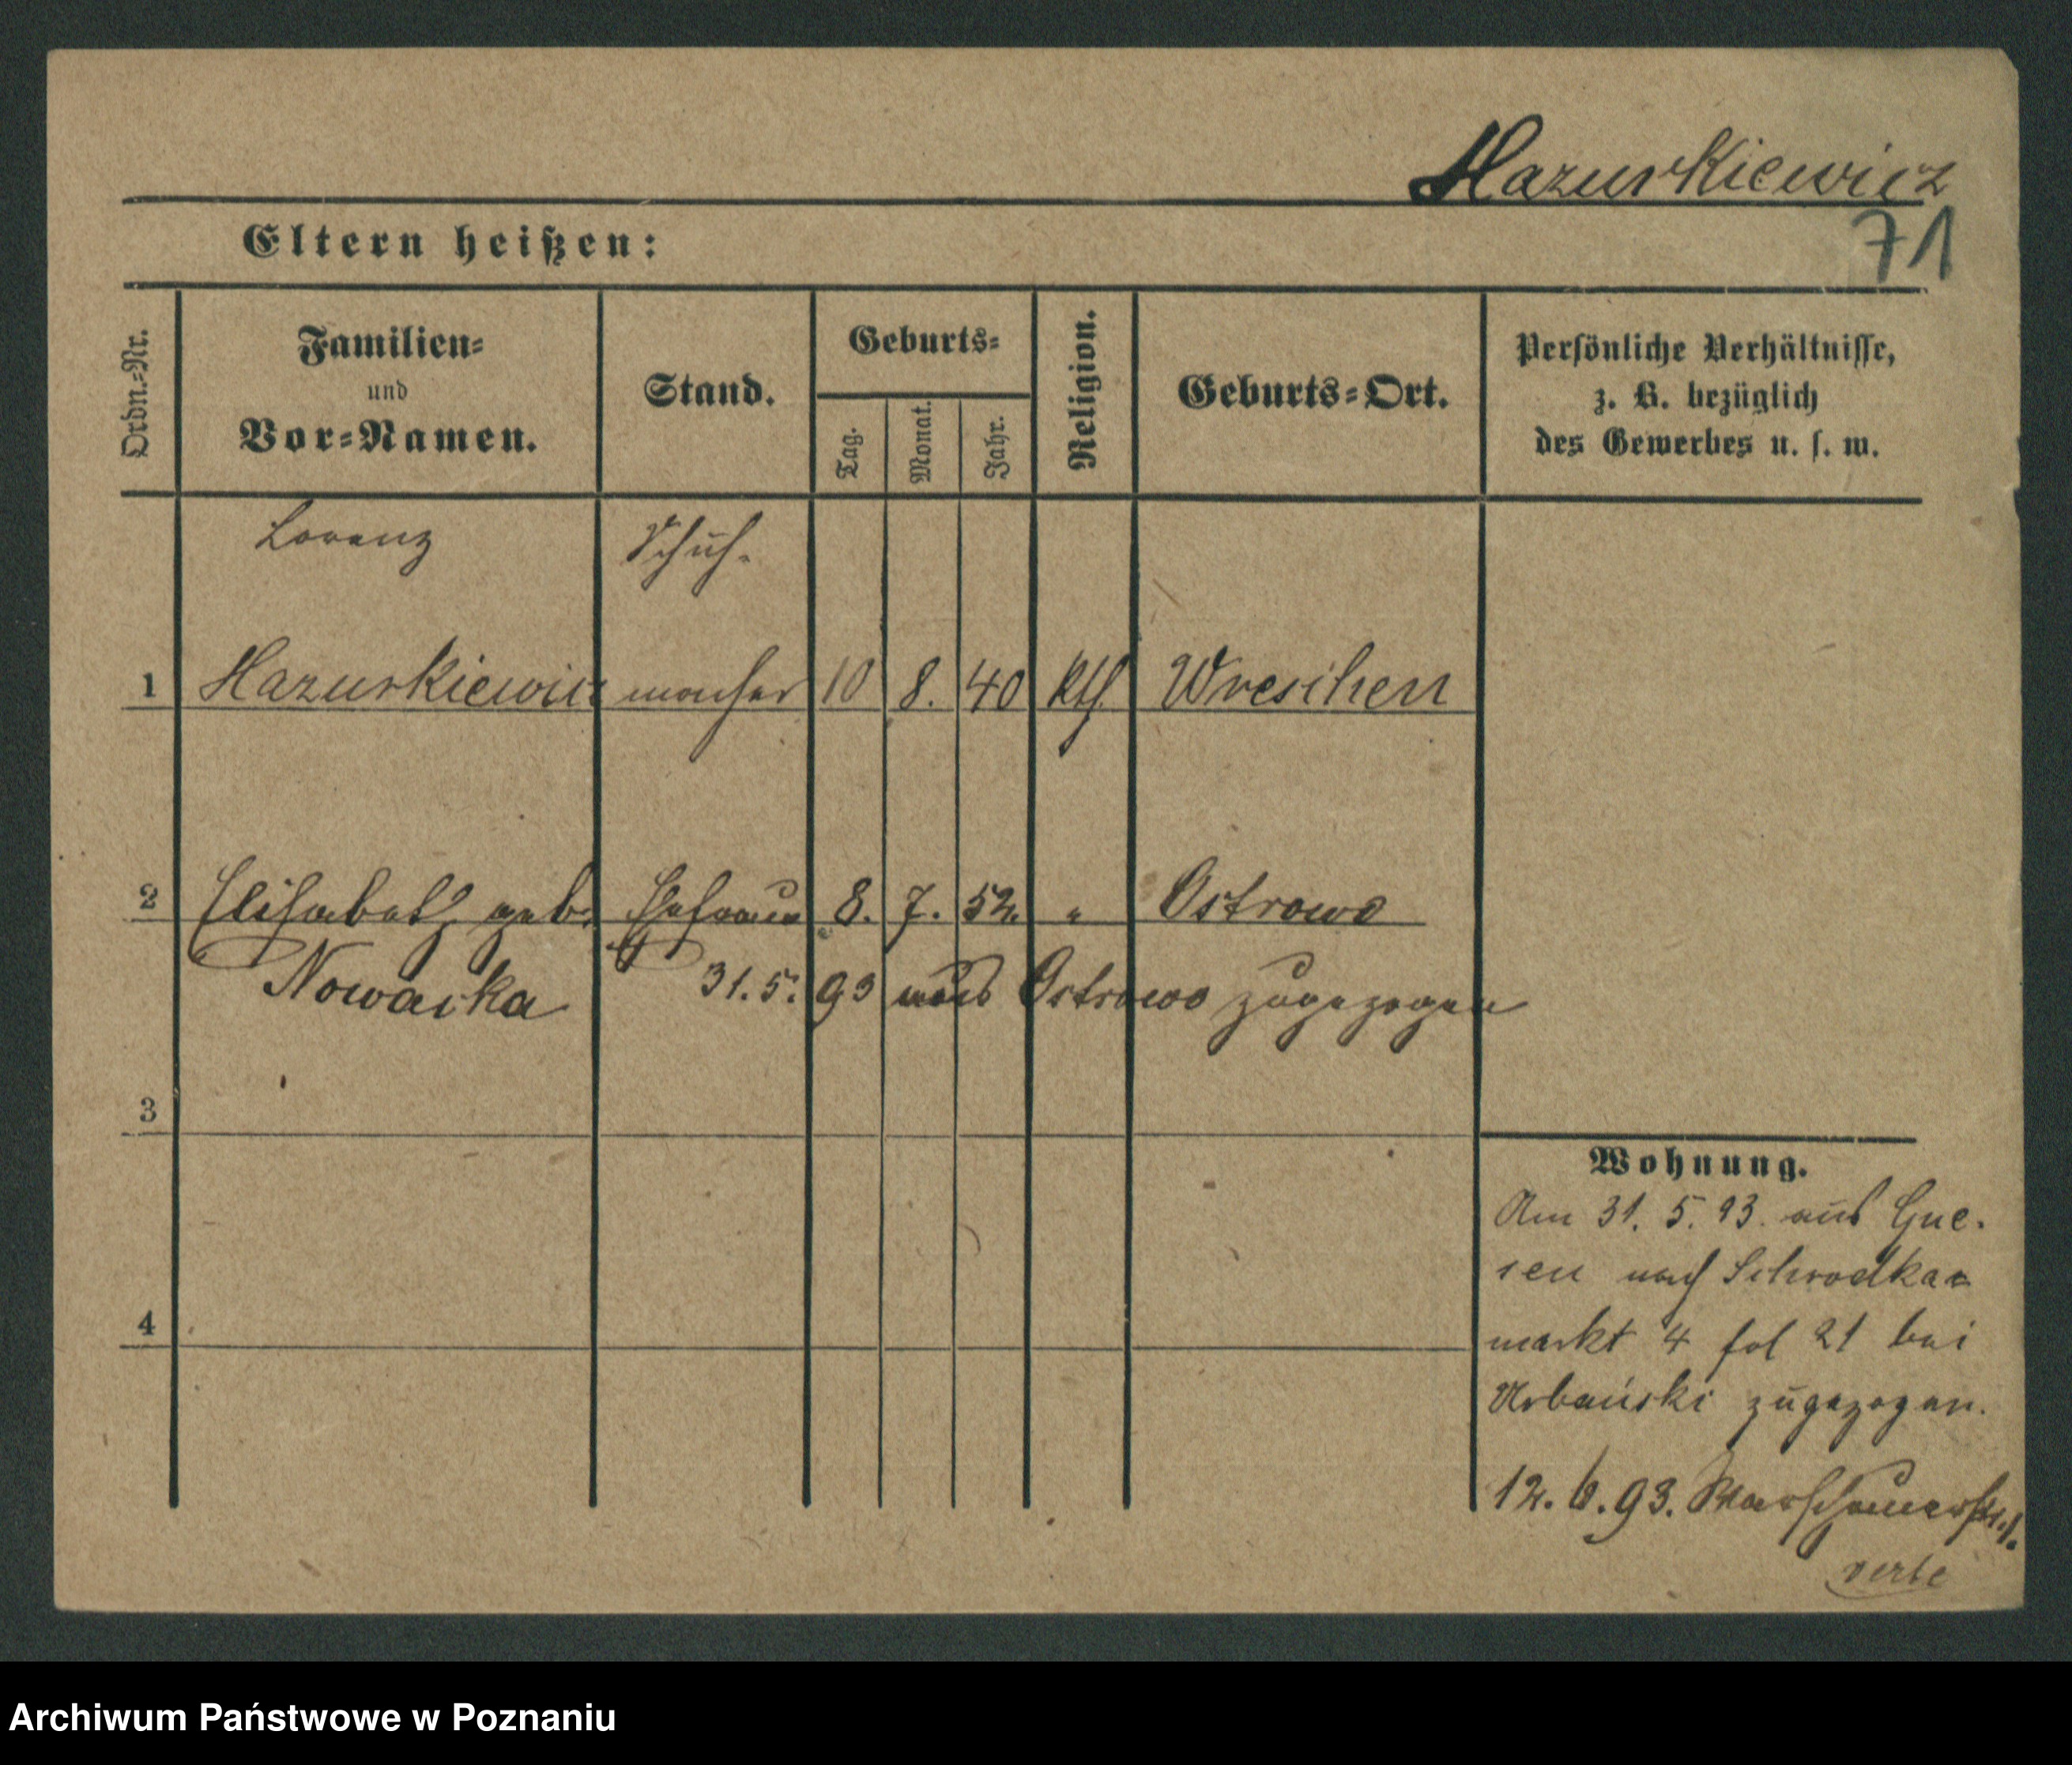 Mazurkiewicz
71
Eltern heißen:
Ordn.-Nr.
Familien-
und
Vor-Namen.
Stand.
Geburts-
Tag.
Monat.
Jahr.
Religion.
Geburts-Ort.
Persönliche Verhältnisse,
z. B. bezüglich
des Gewerbes u. s. w.
Lorenz Schuh-
1 Mazurkiewicz macher 10 8. 40 kth. Wreschen
2 Elisabeth geb. Ehefrau 8. 7. 52. " Ostrowo
Nowacka 31. 5. 93 aus Ostrowo zugezogen
3
4
Wohnung.
Am 31. 5. 93. aus Gne-
sen nach Schrodka-
markt 4 fol 21 bei
Urbański zugezogen.
12. 6. 93. Warschauerstr. 1.
verte
Archiwum Państwowe w Poznaniu